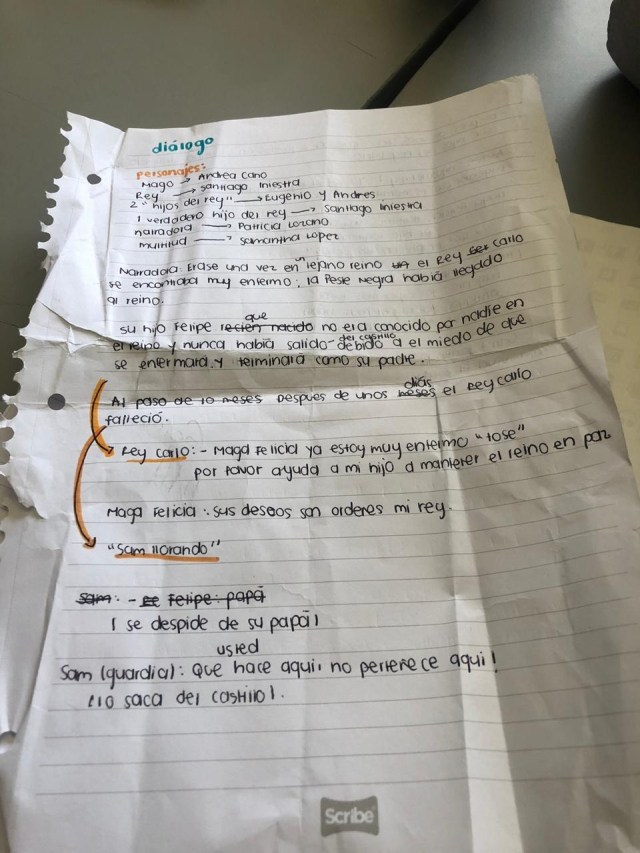 diálogo
personajes:
Mago → Andrea Cano
Rey → Santiago Iniestra
2 "hijos del rey" → Eugenio y Andres
1 verdadero hijo del rey → Santiago Iniestra
narradora → Patricia Lozano
multitud → Samantha Lopez
Narradora: Erase una vez en un lejano reino el Rey Carlo
se encontraba muy enfermo, la Peste Negra había llegado
al reino.
su hijo Felipe recien nacido que no era conocido por nadie en
el reino y nunca había salido del castillo debido a el miedo de que
se enfermara y terminara como su padre.
Al paso de 10 meses Despues de unos meses días el Rey Carlo
falleció.
Rey Carlo: - Maga Felicia ya estoy muy enfermo "tose"
por favor ayuda a mi hijo a mantener el reino en paz
Maga Felicia: Sus deseos son ordenes mi rey.
"Sam llorando"
Sam: - Felipe: papá
( se despide de su papá)
Sam (guardia): Que hace usted aqui, no pertenece aqui!
(lo saca del castillo).
Scribe